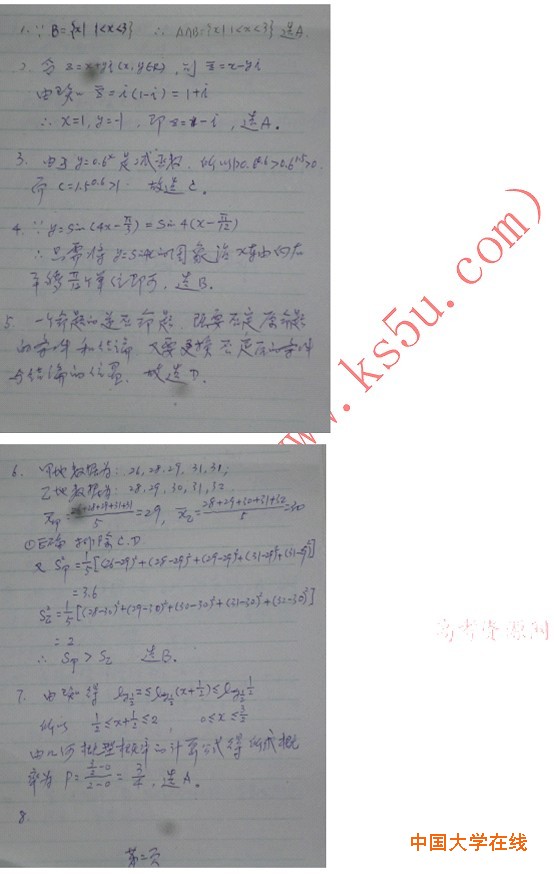 1. ∵ B={x| 1<x<3} ∴ A∩B={x| 1<x<3} 选A.
2. 令 z=x+yi(x,y∈R), 则 z̄=x-yi
由题 z̄=i(1-i)=1+i
∴ x=1, y=-1, 即 z=1-i, 选A.
3. 由于 y=0.6ˣ 是减函数, 所以
而 C=1.5^0.6>1 故选C.
4. ∵ y=sin(4x-π/3)=sin4(x-π/12)
∴ 只需将 y=sin4x的图象沿x轴向右
平移π/12个单位即可, 选B.
5. 一个命题的逆否命题, 既要否定原命题
的条件和结论, 又要更换否定后的条件
与结论的位置. 故选D.
www.ks5u.com)
6. 甲地数据为: 26, 28, 29, 31, 31;
乙地数据为: 28, 29, 30, 31, 32
x̄甲=(26+28+29+31+31)/5=29, x̄乙=(28+29+30+31+32)/5=30
①正确 排除C.D
又 S²甲=1/5[(26-29)²+(28-29)²+(29-29)²+(31-29)²+(31-29)²]
=3.6
S²乙=1/5[(28-30)²+(29-30)²+(30-30)²+(31-30)²+(32-30)²]
=2
∴ S甲>S乙 选B.
高考资源网
7. 由题得
所以 1/2≤x+1/2≤2, 0≤x≤3/2
由几何概型概率的计算公式得所求概
率为 P=(3/2-0)/(2-0)=3/4, 选A.
8.
中国大学在线
第一页